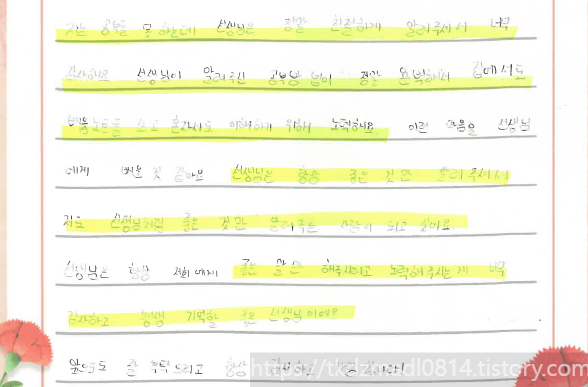 저는 공부를 못 하는데 선생님은 정말 친절하게 알려주셔서 너무
감사해요 선생님이 알려주신 공부방법이 정말 완벽해서 집에서도
배움노트를 쓰고 혼자서도 이해하기 위해 노력해요. 이런 마음을 선생님
에게 배운 것 같아요 선생님은 항상 좋은 것만 알려주셔서
저도 선생님처럼 좋은 것만 알려주는 사람이 되고 싶어요.
선생님은 항상 저희에게 좋은 말만 해주시려고 노력해주시는게 너무
감사하고 평생 기억할 좋은 선생님이에요
앞으로도 잘 부탁드리고 항상
https://tkdzmdl0814.tistory.com